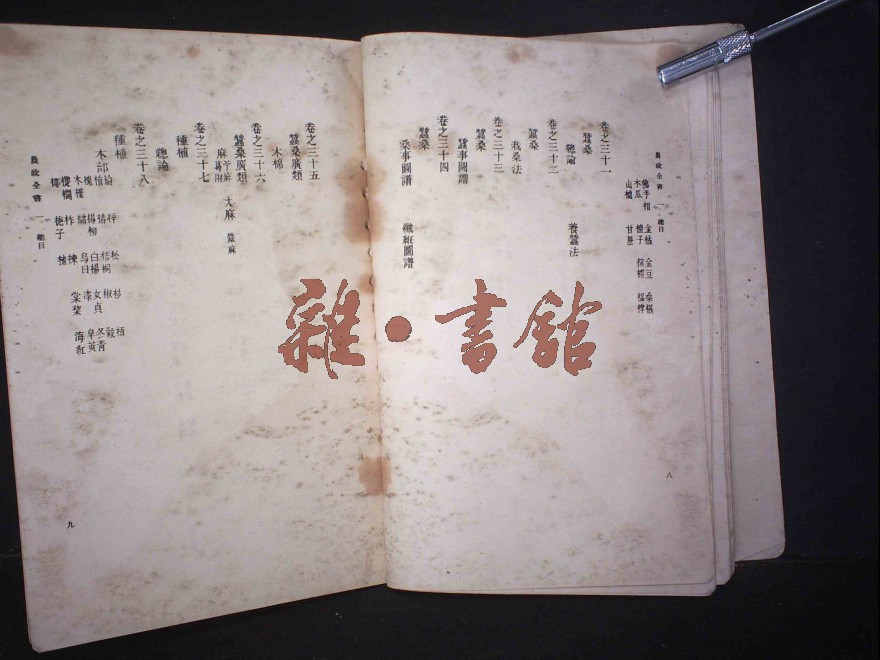 農政全書 一 總目
佛手柑 金橘 金豆 桑椹
木瓜 樝子
山樝 甘蔗
卷之三十一
蠶桑
總論
卷之三十二
蠶桑
栽桑法 養蠶法
卷之三十三
蠶桑
蠶事圖譜
卷之三十四
蠶桑
桑事圖譜 織紝圖譜
八
卷之三十五
蠶桑廣類
木棉
卷之三十六
蠶桑廣類
麻 苧麻 大麻 檾麻
葛 附
卷之三十七
種植
總論
卷之三十八
種植
木部
榆 梓 松 杉 柏
檜 椿 梧桐 椒 穀
槐 楊柳 白楊 女貞 冬青
木槿 烏臼 漆 皁莢
椶櫚 柞 楝 棠棃 海紅
農政全書 一 總目
九
雜·書館